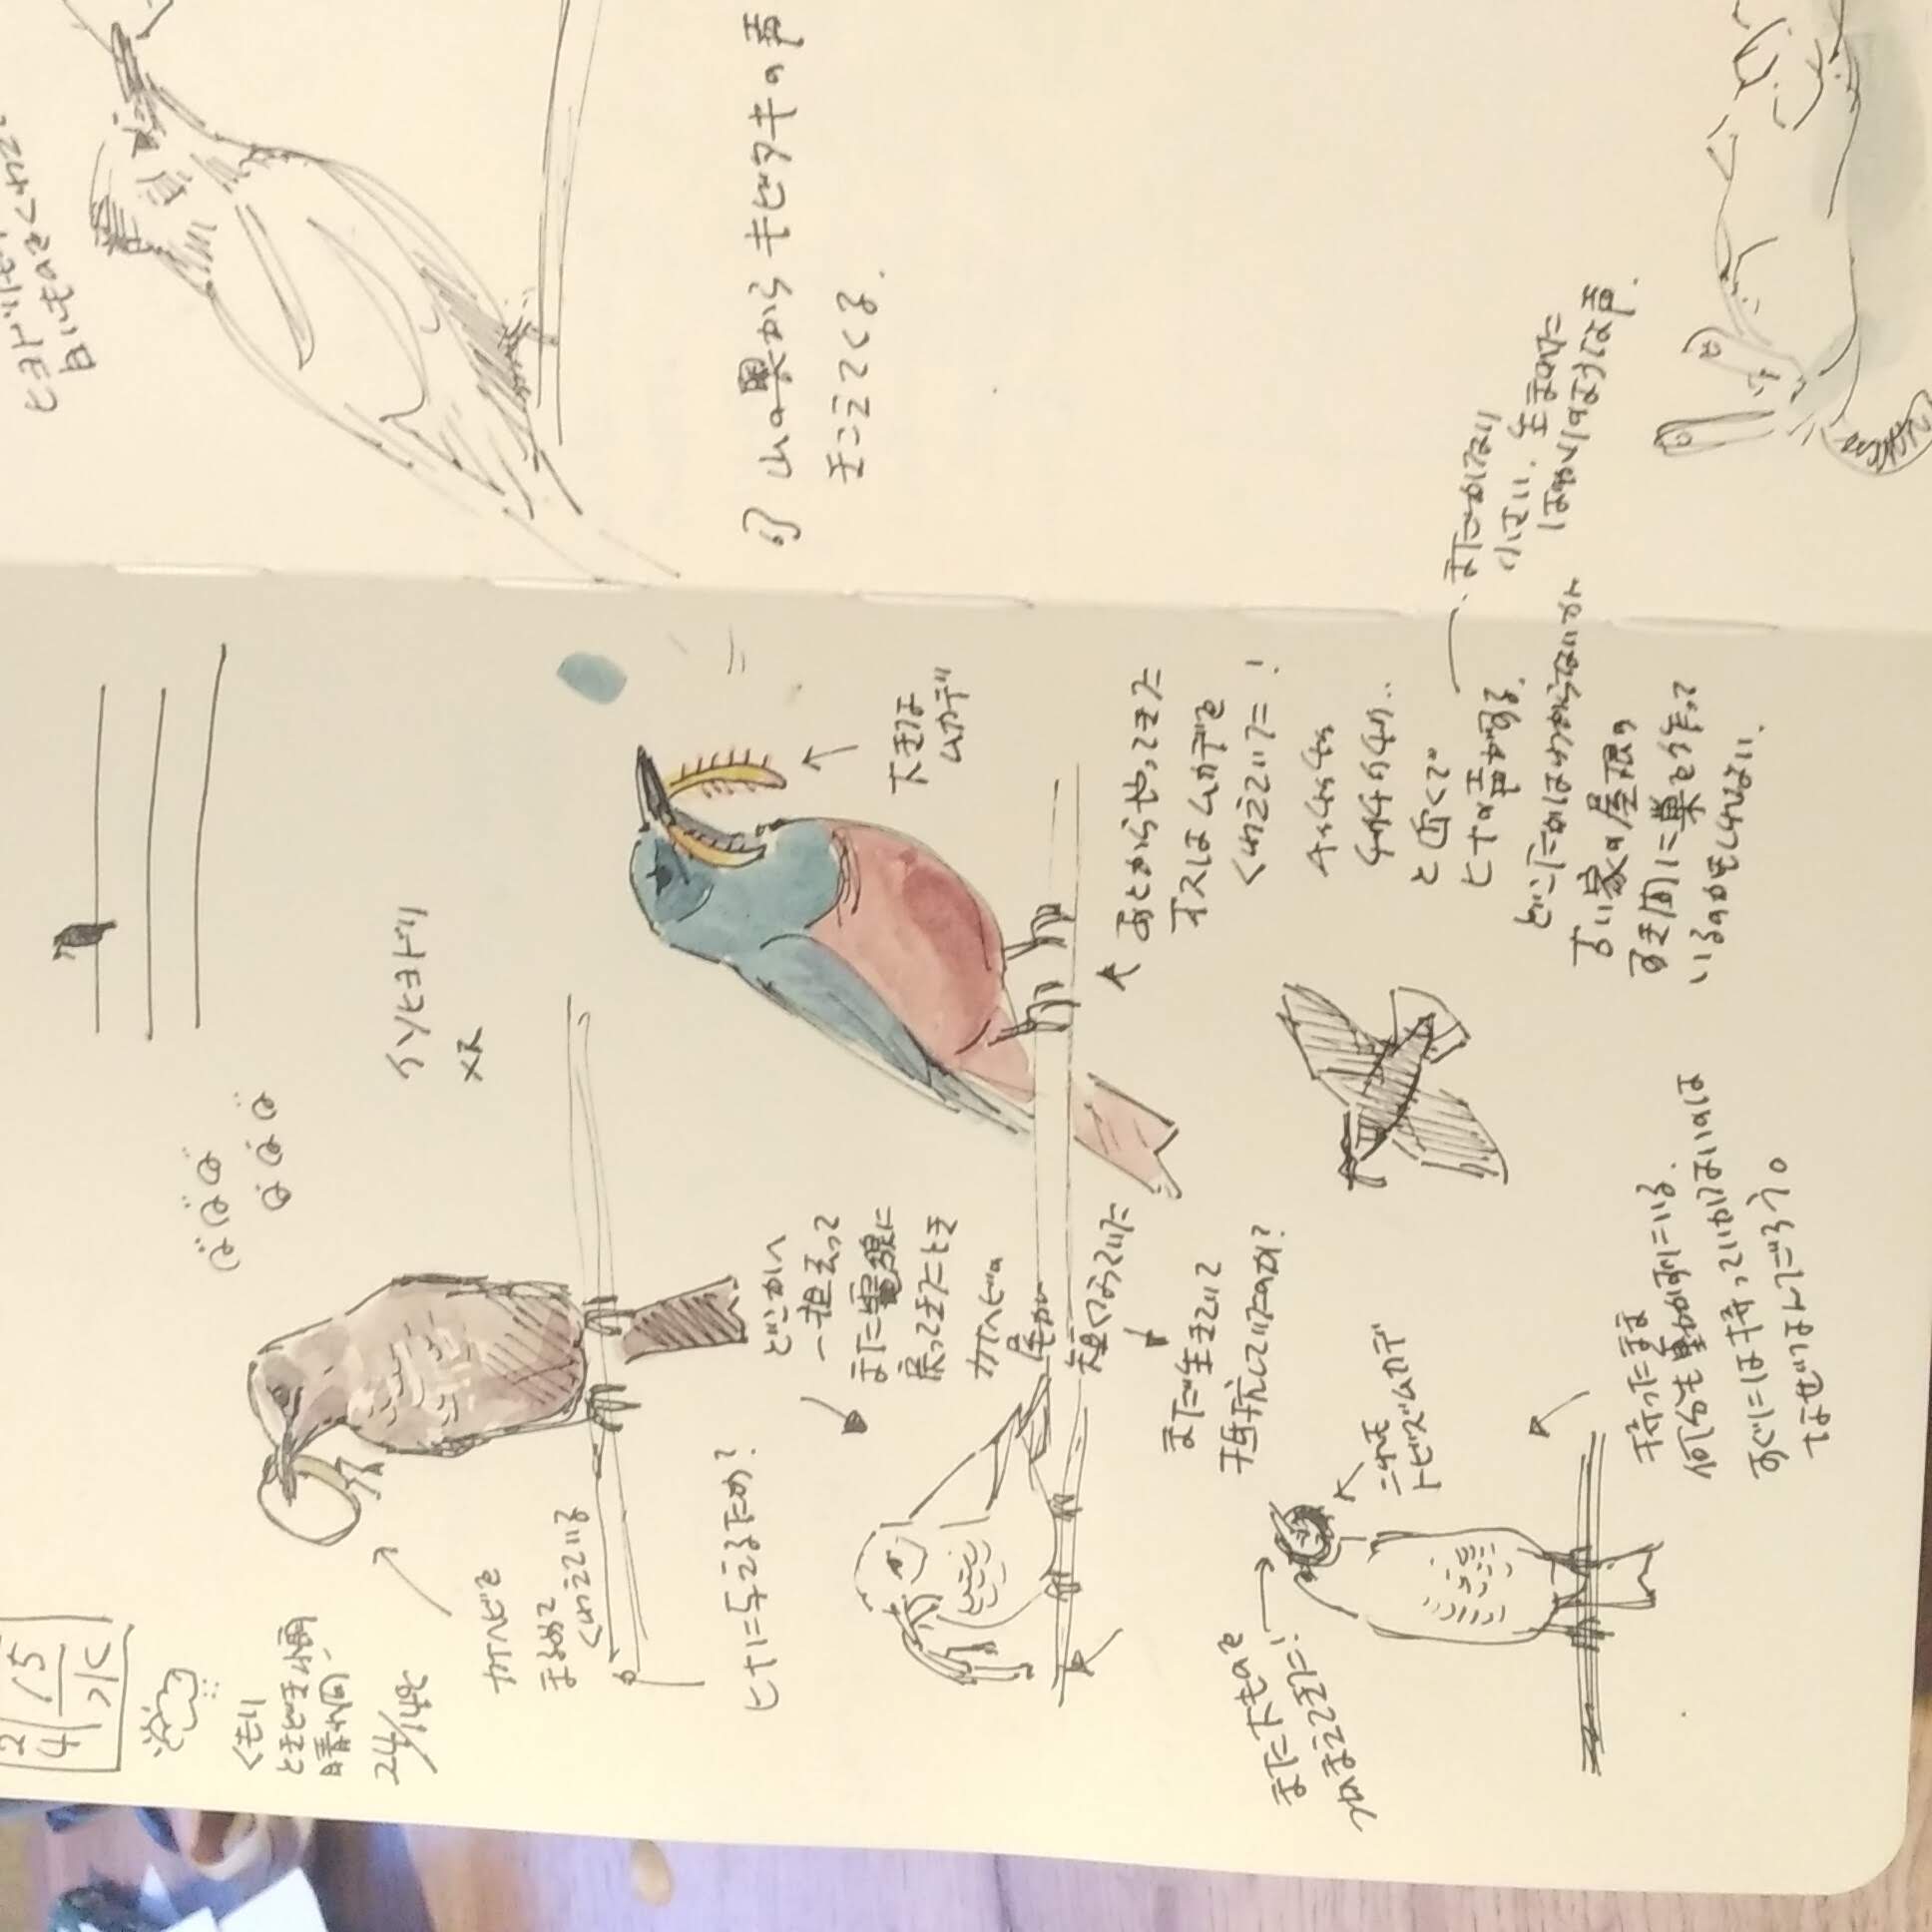 15
水
くもり
ときどき小雨
晴れ間、
24/14℃
カナヘビを
まるめて
くわえている
イソヒヨドリ
メス
ヒナに与えるため?
どこかへ
一担去って
また電線に
戻ってきたとき
カナヘビの
尾が
短くなっていた
まだ生きてて
抵抗していたのか?
大きな
ムカデ
あとからやってきた
オスはムカデを
くわえていた!
と近くで
ヒナの声がする.
どこにかはわからないが
古い家の屋根の
すき間に巣を作って
いるのかもしれない.
まだかなり
小さい. 生まれた
ばかりのような声.
つかまえてきた!
これも
トビズムカデ
持ったまま
何分も動かずにいる.
すぐには持っていかないのは
なぜなんだろう。
ヒヨドリも
白いものをくわえ
山の奥からキビタキの声
きこえてくる.